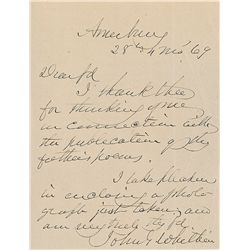 Amesbury
28th 4 Mo. 69
Dear fd
I thank thee
for thinking of me
in connection with
the publication of thy
father's poems.
I take pleasure
in enclosing a photo-
graph just taken, and
am very truly thy fd.
John G Whittier